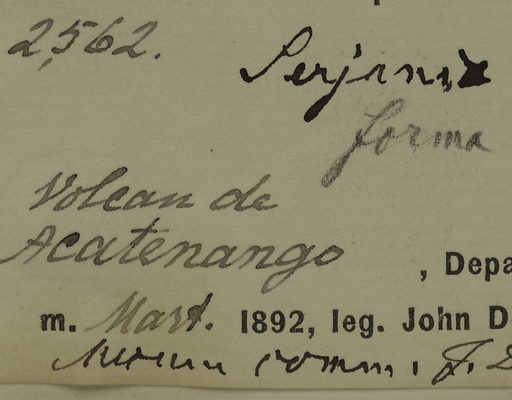 2,562.
Serjania
forma
Volcan de
Acatenango
, Depa
m. Mart. 1892, leg. John D
comm. J. D